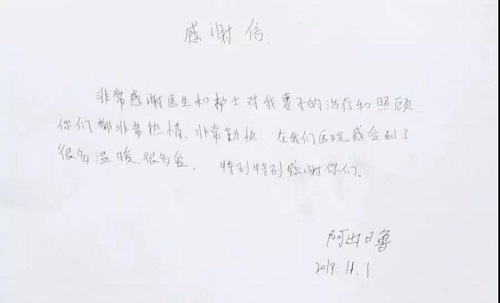 感谢信
非常感谢医生和护士对我妻子的治疗和照顾
你们都非常热情、非常勤快 在我们医院感受到了
很多温暖 很多爱. 特别特别感谢你们.
阿出日鲁
2019.11.1